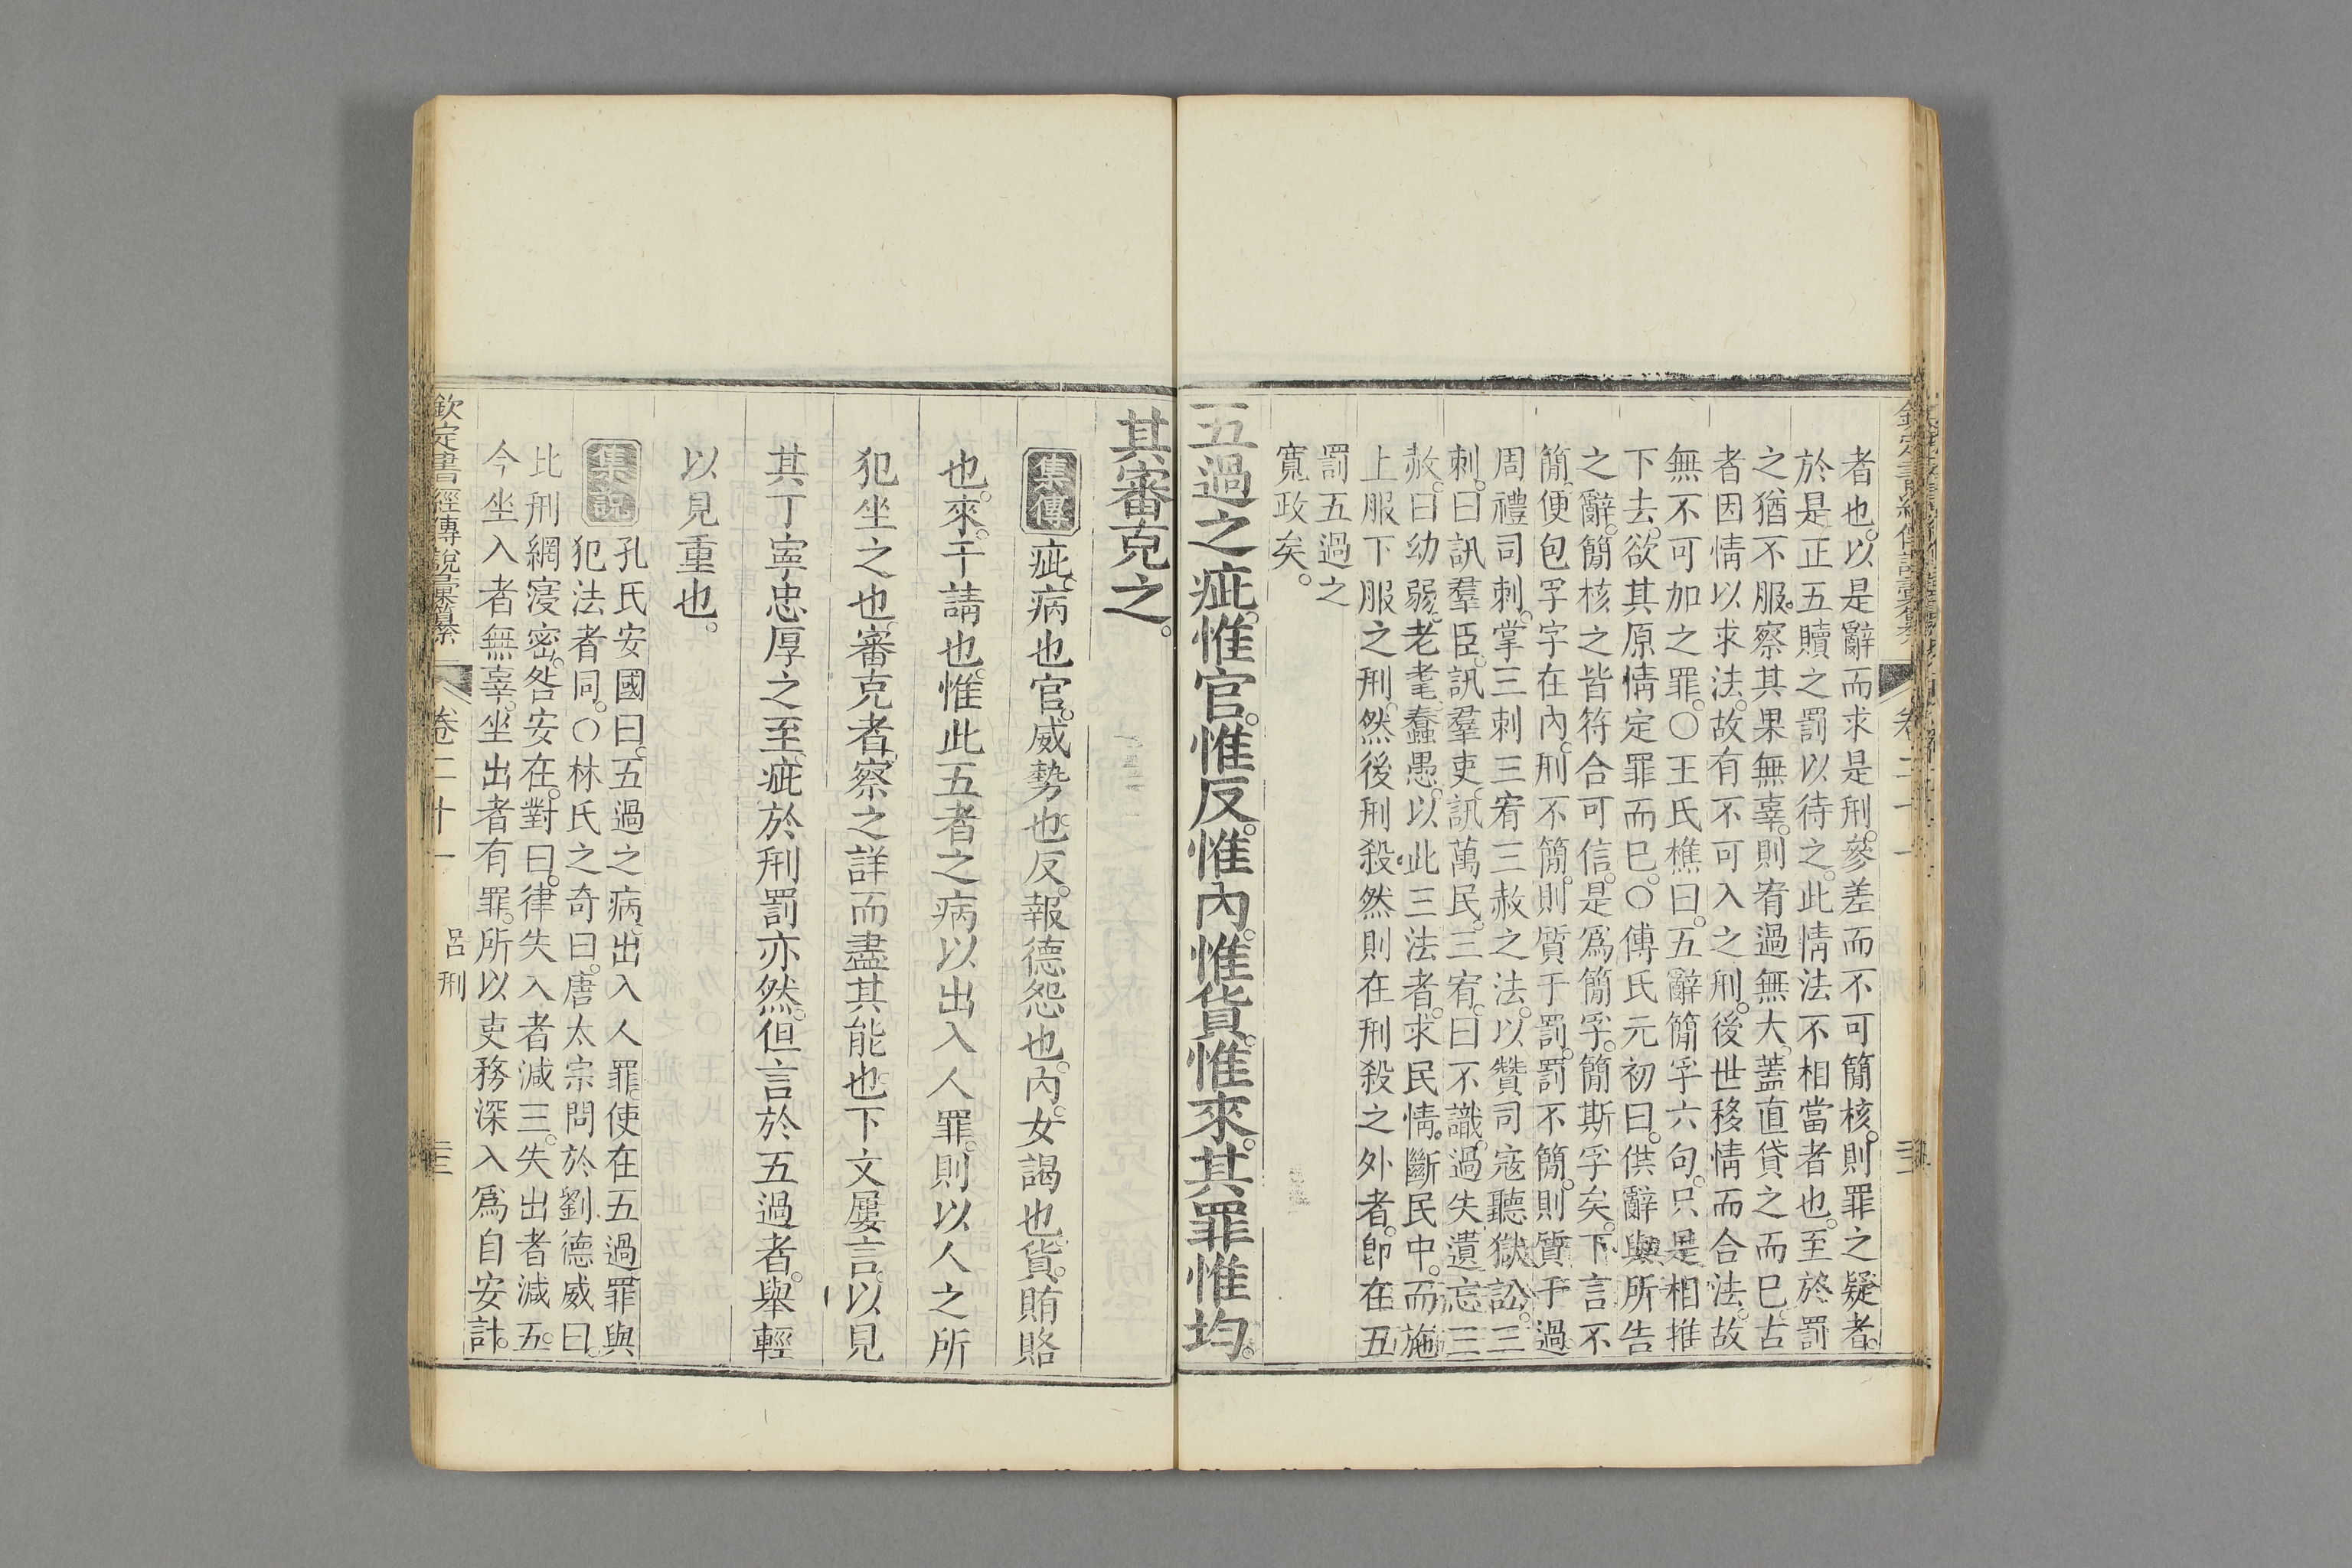 者也。以是辭而求是刑。參差而不可簡核。則罪之疑者。
於是正五贖之罰以待之。此情法不相當者也。至於罰
之猶不服。察其果無辜。則宥過無大。蓋直貸之而已。古
者因情以求法。故有不可入之刑。後世移情而合法。故
無不可加之罪。〇王氏樵曰。五辭簡孚六句。只是相推
下去。欲其原情定罪而已。〇傅氏元初曰。供辭與所告
之辭。簡核之皆符合可信。是爲簡孚。簡斯孚矣。下言不
簡。便包孚字在內。刑不簡。則質于罰。罰不簡。則質于過。
周禮司刺。掌三刺三宥三赦之法。以贊司寇聽獄訟。三
刺。曰訊羣臣。訊羣吏。訊萬民。三宥。曰不識。過失。遺忘。三
赦。曰幼弱。老耄。蠢愚。以此三法者。求民情。斷民中。而施
上服下服之刑。然後刑殺。然則在刑殺之外者。卽在五
罰五過之
寬政矣。
五過之疵。惟官。惟反。惟內。惟貨。惟來。其罪惟均。
其審克之。
集傳 疵。病也。官。威勢也。反。報德怨也。內。女謁也。貨。賄賂
也。來。干請也。惟此五者之病以出入人罪。則以人之所
犯坐之也。審克者。察之詳而盡其能也。下文屢言。以見
其丁寧忠厚之至。疵於刑罰亦然。但言於五過者。舉輕
以見重也。
集說 孔氏安國曰。五過之病。出入人罪。使在五過。罪與
犯法者同。〇林氏之奇曰。唐太宗問於劉德威曰。
比刑網寖密。咎安在。對曰。律失入者減三。失出者減五。
今坐入者無辜。坐出者有罪。所以吏務深入爲自安計。
欽定書經傳說彙纂 卷二十一 呂刑